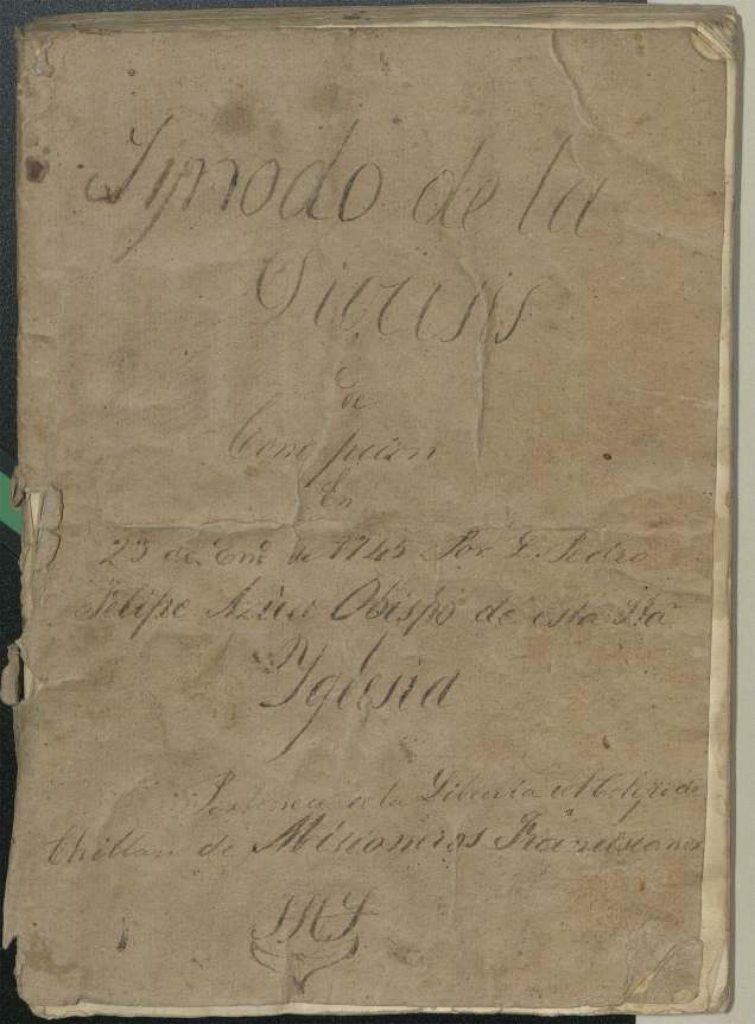 Synodo de la
Diocesis
de
Concepcion
En
23 de Eno de 1745 Por D. Pedro
Felipe Azua Obispo de esta Sta
Yglesia
Pertenece a la Libreria del Colegio de
Chillan de Misioneros Franciscanos